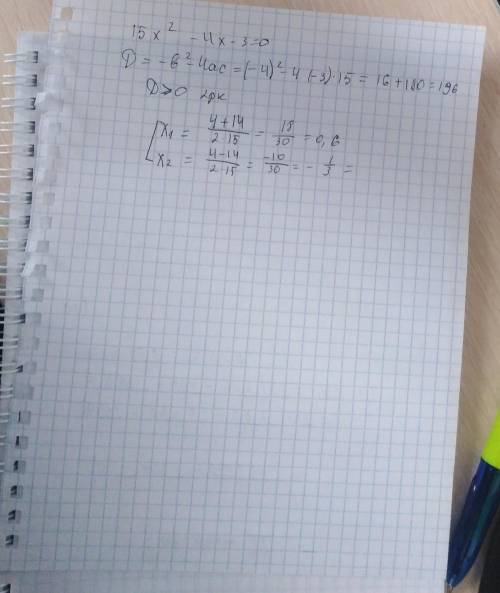 15x² - 4x - 3 = 0
D = -b² - 4ac = (-4)² - 4·(-3)·15 = 16 + 180 = 196
D > 0 2рк
[x₁ = (4+14)/(2·15) = 18/30 = 0,6
x₂ = (4-14)/(2·15) = -10/30 = -1/3 =